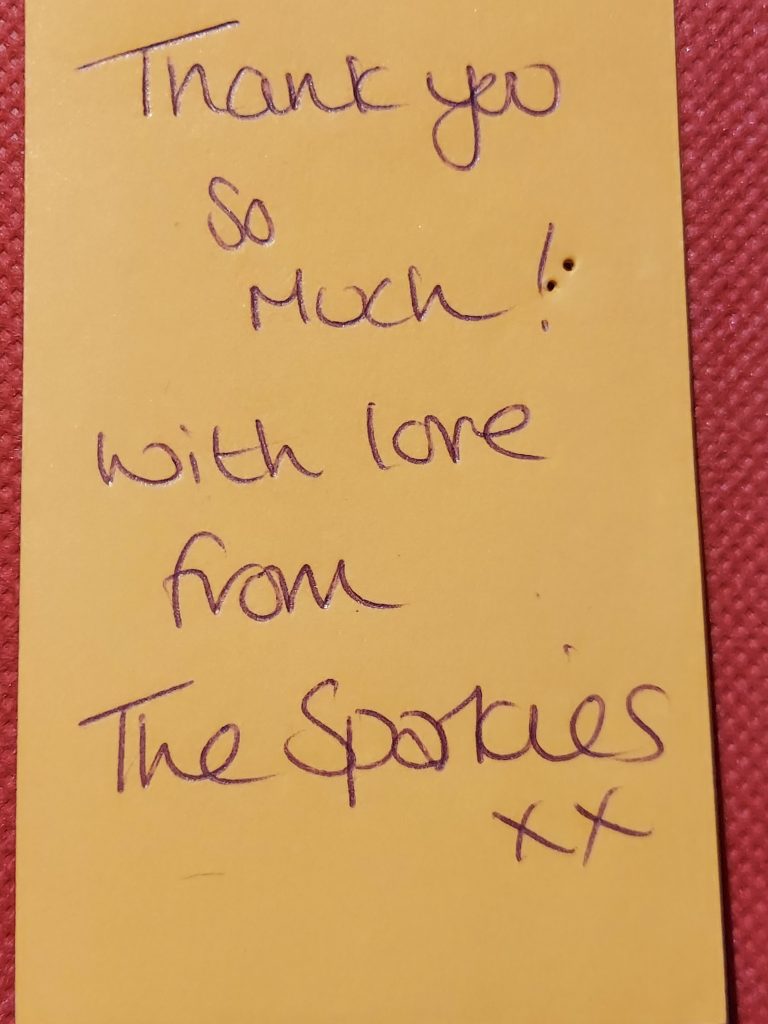 Thank you
So
Much!
with love
from
The Sparkies
xx